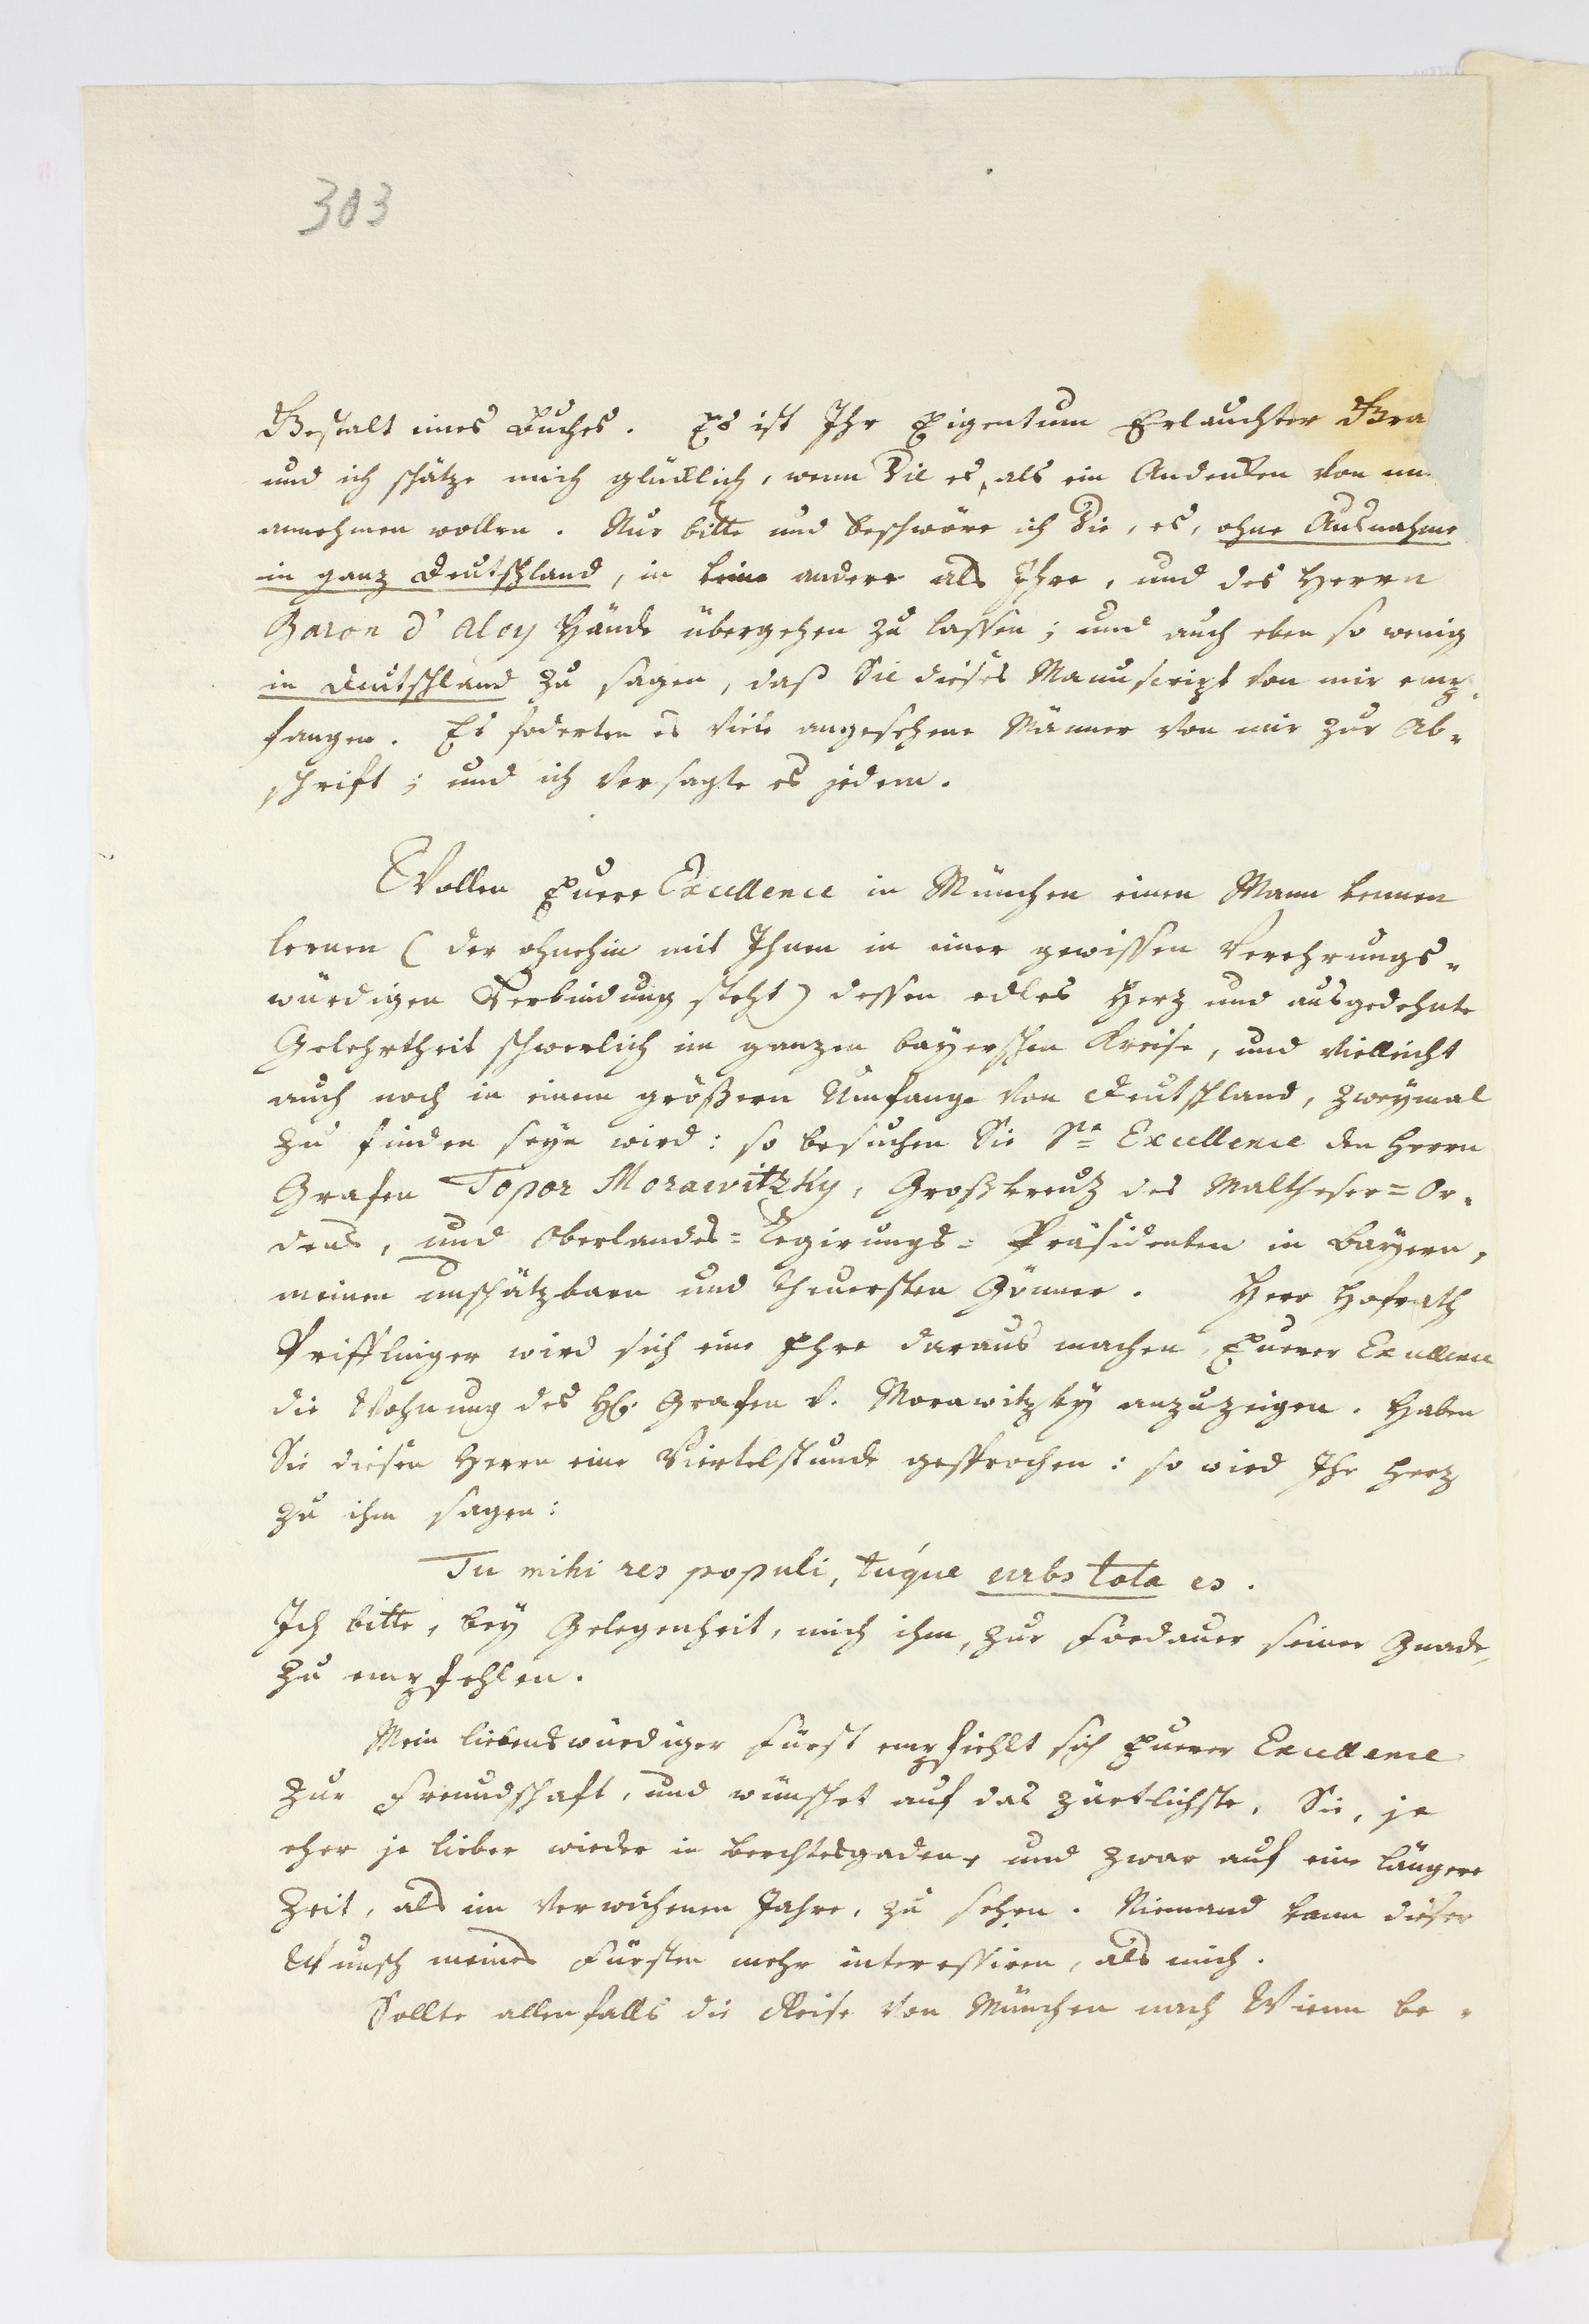 303
Gestalt eines Buches. Es ist Ihr Eigentum Erlauchter Gra
und ich schätze mich glücklich, wenn Sie es, als ein Andenken von
annehmen wollen. Nur bitte und beschwöre ich Sie, es, ohne Ausnahme
in ganz Deutschland, in keine andere als Ihre, und des Herrn
Baron d'Aloy Hände übergehen zu lassen; und auch eben so wenig
in Deutschland zu sagen, daß Sie dieses Manuscript von mir emp=
fangen. Es foderten es viele angesehene Männer von mir zur Ab=
schrift; und ich versagte es jedem.
Wollen Euere Excellence in München einen Mann kennen
lernen (der ohnehin mit Ihnen in einer gewissen Verehrungs=
würdigen Verbindung steht) dessen edles Herz und ausgedehnte
Gelehrtheit schwerlich im ganzen bayerschen Kreise, und vielleicht
auch noch in einem größern Umfange von Deutschland, zweymal
zu finden seyn wird: so besuchen Sie Se Excellence den Herrn
Grafen Topor Morawitzky, Großkreuz des Maltheser=Or=
dens, und Oberlandes=Regirungs=Präsidenten in Bayern,
meinen unschätzbarn und theuersten Gönner. Herr Hofrath
Prifflinger wird sich eine Ehre daraus machen, Euerer Excellence
die Wohnung des H. Grafen v. Morawitzky anzuzeigen. Haben
Sie diesen Herrn eine Viertelstunde gesprochen: so wird Ihr Herz
zu ihm sagen:
Tu mihi res populi, túque urbs tota es.
Ich bitte, bey Gelegenheit, mich ihm, zur Fordauer seiner Gnade,
zu empfehlen.
Mein liebenswürdiger Fürst empfiehlt sich Euerer Excellence
zur Freundschaft, und wünschet auf das zärtlichste, Sie, je
eher je lieber wieder in Berchtesgaden, und zwar auf eine längere
Zeit, als im verwichenen Jahre, zu sehen. Niemand kann dieser
Wunsch meines Fürsten mehr interessiren, als mich.
Sollte allenfalls die Reise von München nach Wienn be=